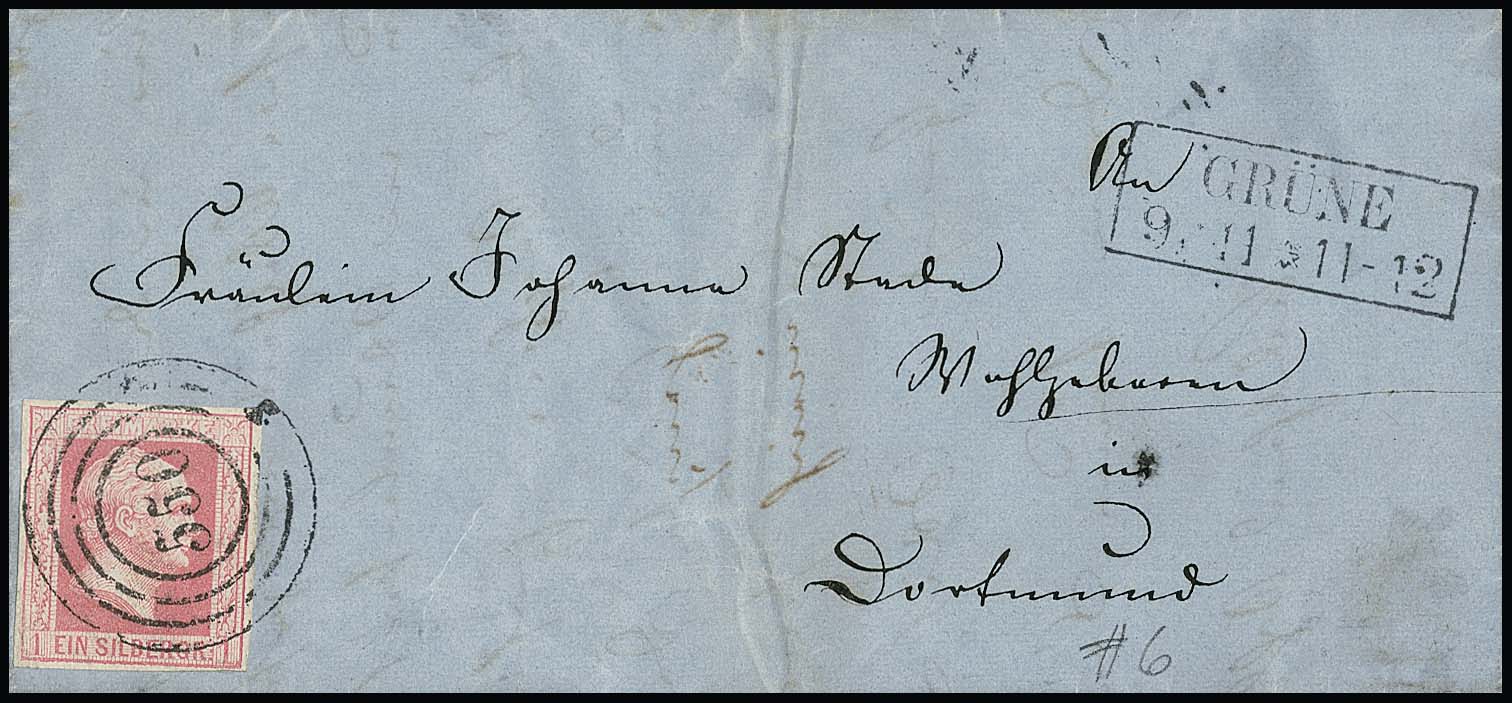 An
GRÜNE
9 11 11-12
Fräulein Johanna Stade
Wohlgeboren
in
Dortmund
550
1 EIN SILBERGR. 1
#6